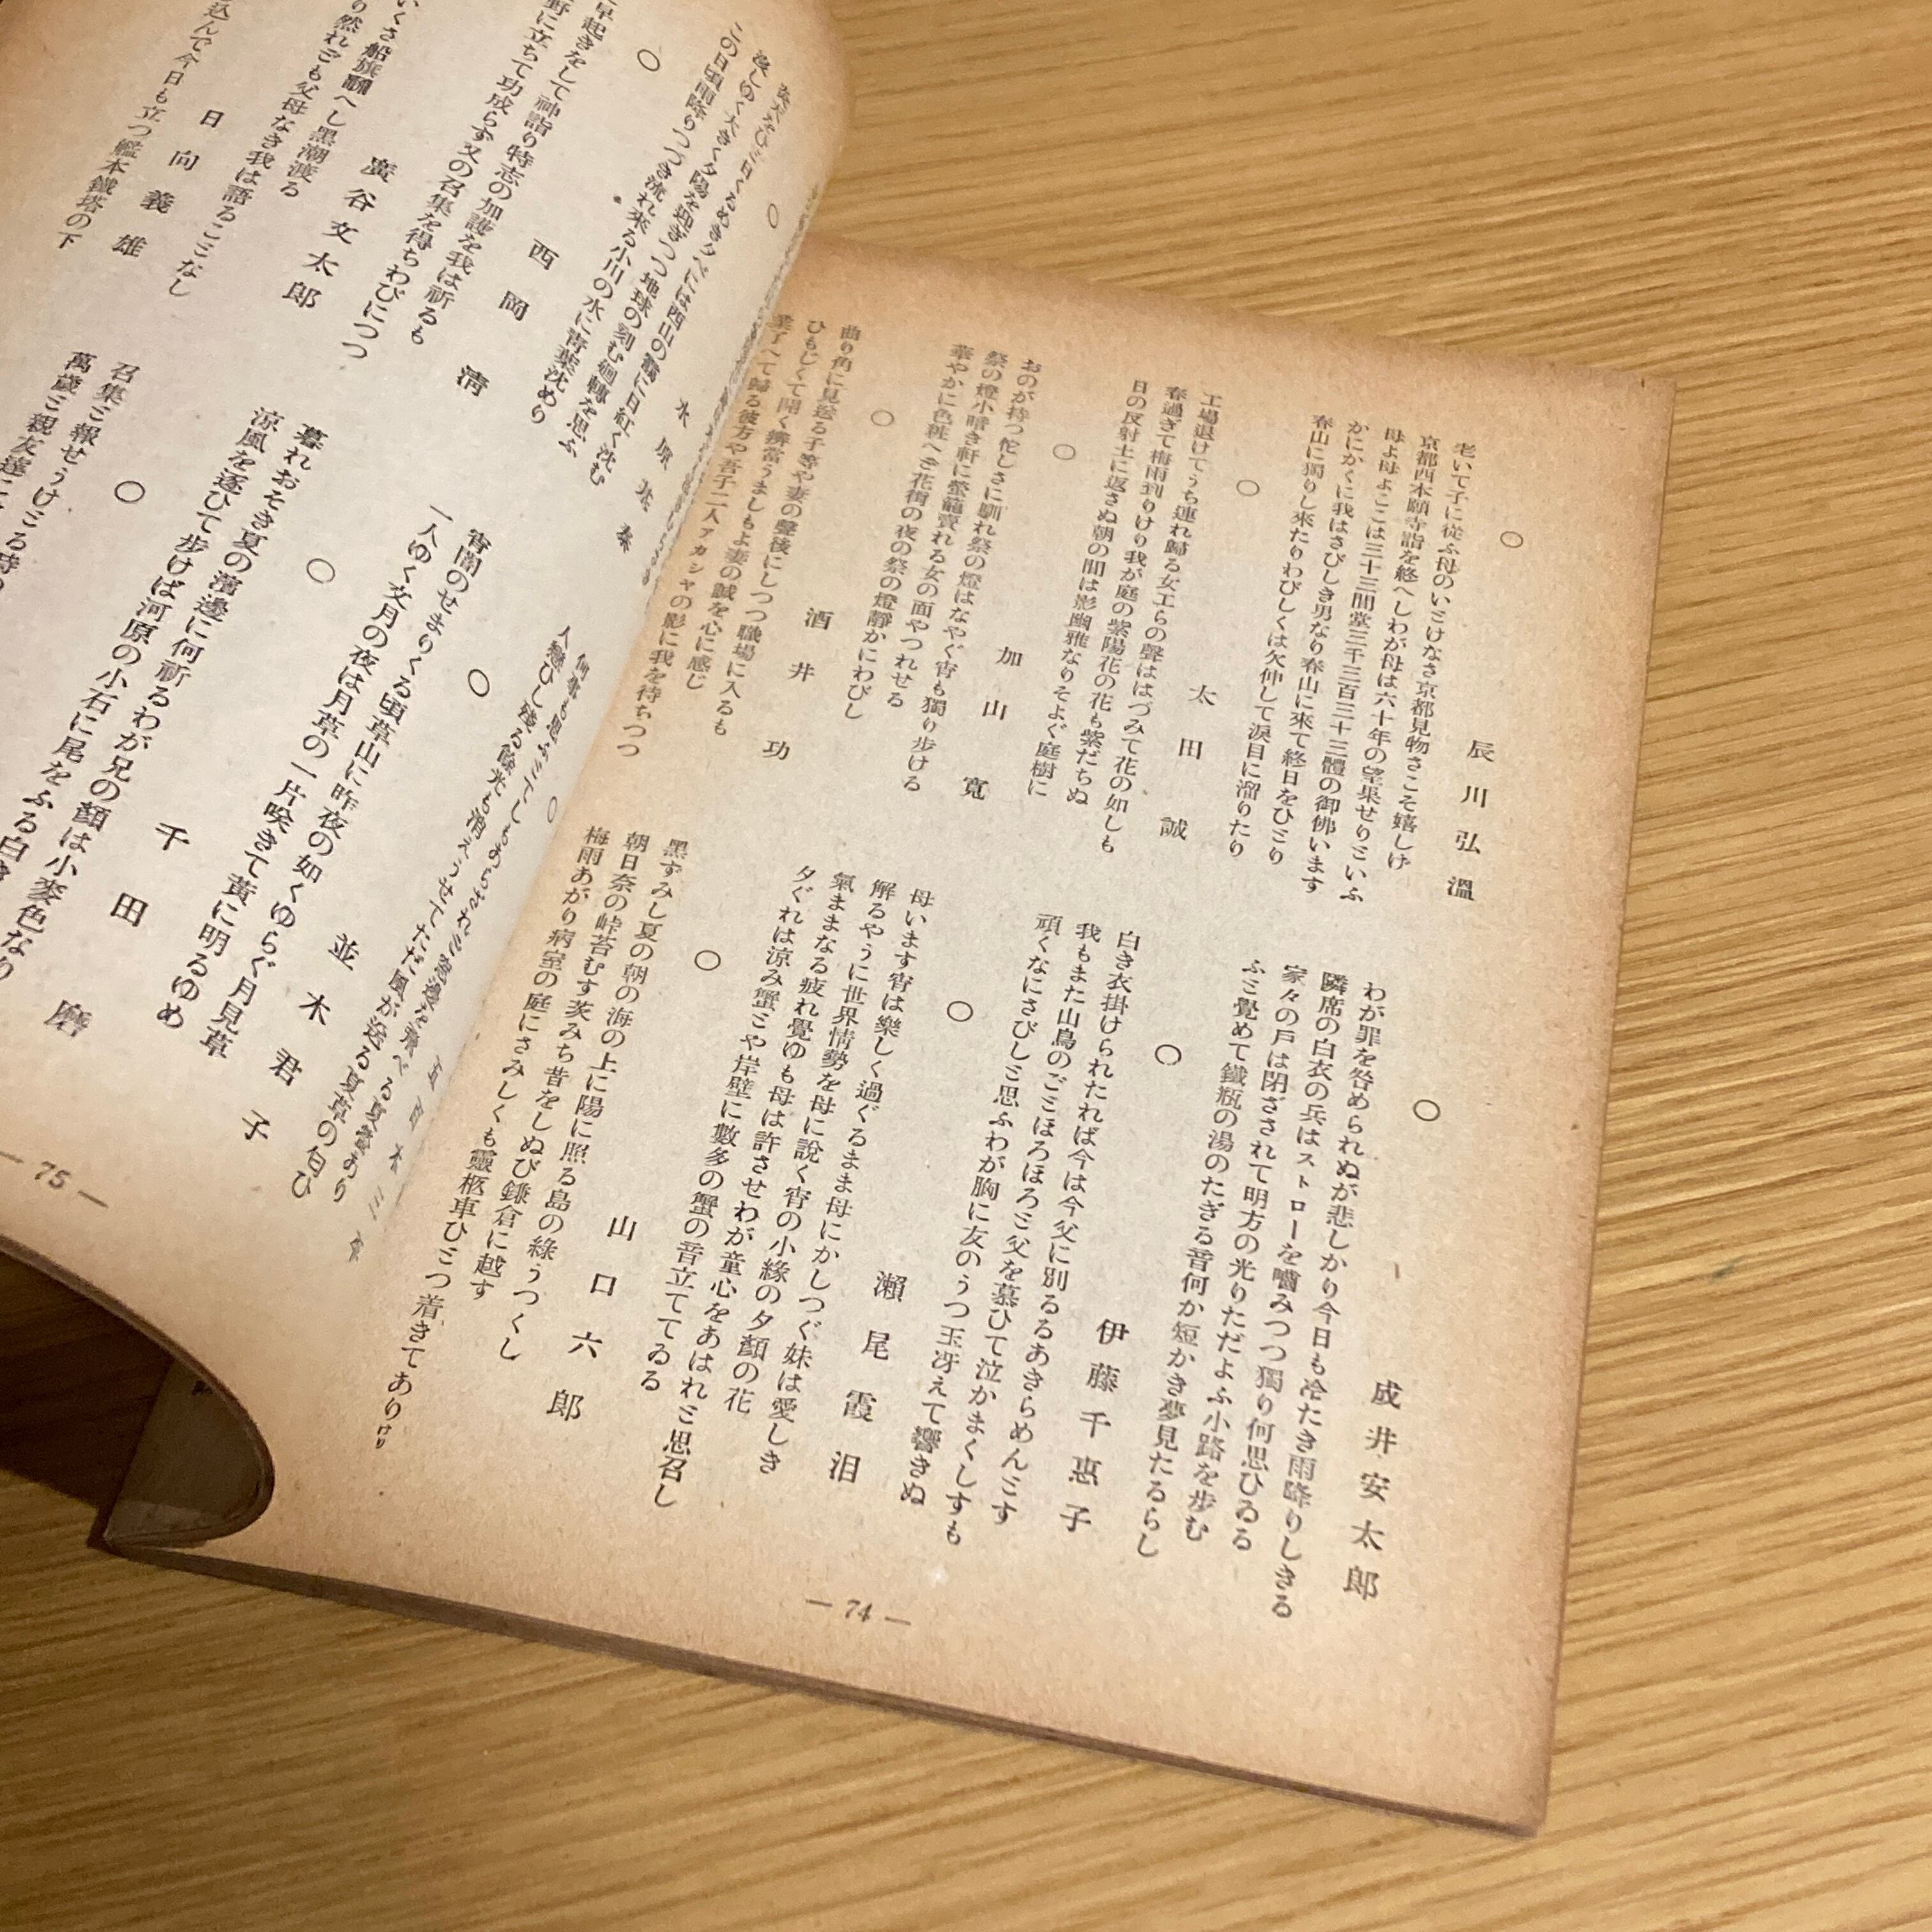 ○
辰川弘溫
老いて子に從ふ母のいとけなさ京都見物さこそ嬉しけ
京都西本願寺詣を終へしわが母は六十年の望果せりといふ
母よ母よここは三十三間堂三千三百三十三體の御佛います
かにかくに我はさびしき男なり春山に來て終日をひとり
春山に獨りし來たりわびしくは欠伸して淚目に溜りたり
○
太田誠
工場退けてうち連れ歸る女工らの聲ははづみて花の如しも
春過ぎて梅雨到りけり我が庭の紫陽花の花も紫だちぬ
日の反射土に返さぬ朝の間は影幽雅なりそよぐ庭樹に
○
加山寬
おのが持つ佗しさに馴れ祭の燈はなやぐ宵も獨り步ける
祭の燈小暗き軒に螢籠賣れる女の面やつれせる
華やかに色粧へき花街の夜の祭の燈靜かにわびし
○
酒井功
曲り角に見送る子等や妻の聲後にしつつ職場に入るも
ひもじくて開く辨當うましもよ妻の誠を心に感じ
業了へて歸る彼方や吾子二人アカシヤの影に我を待ちつつ
○
成井安太郎
わが罪を咎められぬが悲しかり今日も冷たき雨降りしきる
隣席の白衣の兵はストローを嚙みつつ獨り何思ひゐる
家々の戶は閉ざされて明方の光りただよふ小路を步む
ふと覺めて鐵瓶の湯のたぎる音何か短かき夢見たるらし
○
伊藤千惠子
白き衣掛けられたれば今は今父に別るるあきらめんとす
我もまた山鳥のごとほろほろと父を慕ひて泣かまくしすも
頑くなにさびしと思ふわが胸に友のうつ玉冴えて響きぬ
○
瀨尾霞泪
母います宵は樂しく過ぐるまま母にかしつぐ妹は愛しき
解るやうに世界情勢を母に說く宵の小緣の夕顏の花
氣ままなる疲れ覺ゆも母は許させわが童心をあはれと思召し
夕ぐれは涼み蟹とや岸壁に數多の蟹の音立ててゐる
○
山口六郎
黑ずみし夏の朝の海の上に陽に照る島の綠うつくし
朝日奈の峠苔むす茨みち昔をしぬび鎌倉に越す
梅雨あがり病室の庭にさみしくも靈柩車ひとつ着きてありけり
― 74 ―
○
水原
この日頃雨降りつづき流れ來る小川の水に靑葉沈めり
○
西岡淸
早起きをして神詣り特志の加護を我は祈るも
野に立ちて功成らず又の召集を得ちわびにつつ
廣谷文太郎
いくさ船旗飜へし黑潮渡る
り然れども父母なき我は語ることなし
日向義雄
込んで今日も立つ艦本鐵塔の下
○
何事も思ふ
人戀ひし殘る餘光も消えうせてただ風が送る夏草の匂ひ
○
並木君子
宵闇のせまりくる頃草山に昨夜の如くゆらぐ月見草
一人ゆく文月の夜は月草の一片咲きて黃に明るゆめ
○
千田磨
暮れおそき夏の濱邊に何祈るわが兄の顏は小麥色なり
涼風を逐ひて步けば河原の小石に尾をふる白
○
召集と報せうけとる時
萬歲と親友達に
― 75 ―